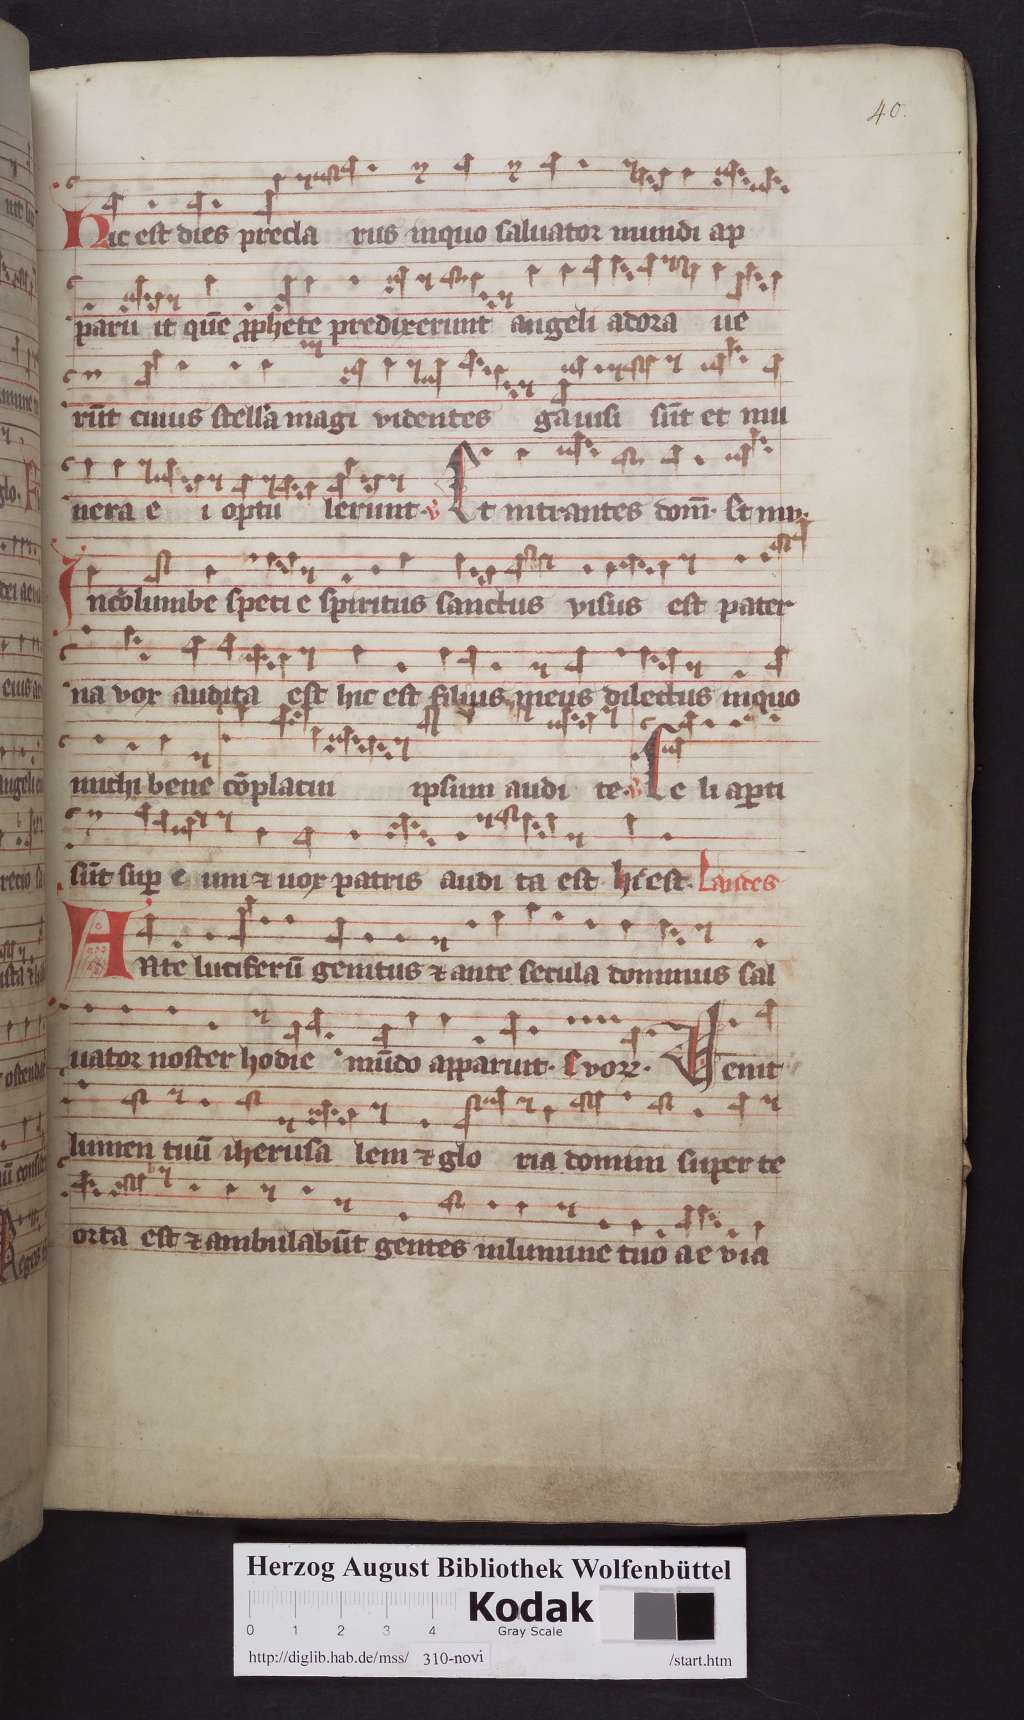 40.
Hic est dies precla rus inquo saluator mundi ap
paru it quē ꝓphete predixerunt angeli adora ue
rūt cuius stellā magi videntes gauisi sūt et mu
nera e i optu lerunt. v Et intrantes dom̄. Et mu.
In columbe speti e spiritus sanctus visus est pater
na vor audita est hic est filius meus dilectus inquo
michi bene cōplacui ipsum audi te. v Ce li aꝑti
sūt suꝑ e um ⁊ uox patris audi ta est. hic est. Laudes
Ante luciferū genitus ⁊ ante secula dominus sal
uator noster hodie mūdo apparuit. Euouae. Venit
lumen tuū iherusa lem ⁊ glo ria domini super te
orta est ⁊ ambulabūt gentes inlumine tuo ae via
Herzog August Bibliothek Wolfenbüttel
0 1 2 3 4
Kodak
Gray Scale
http://diglib.hab.de/mss/ 310-novi /start.htm